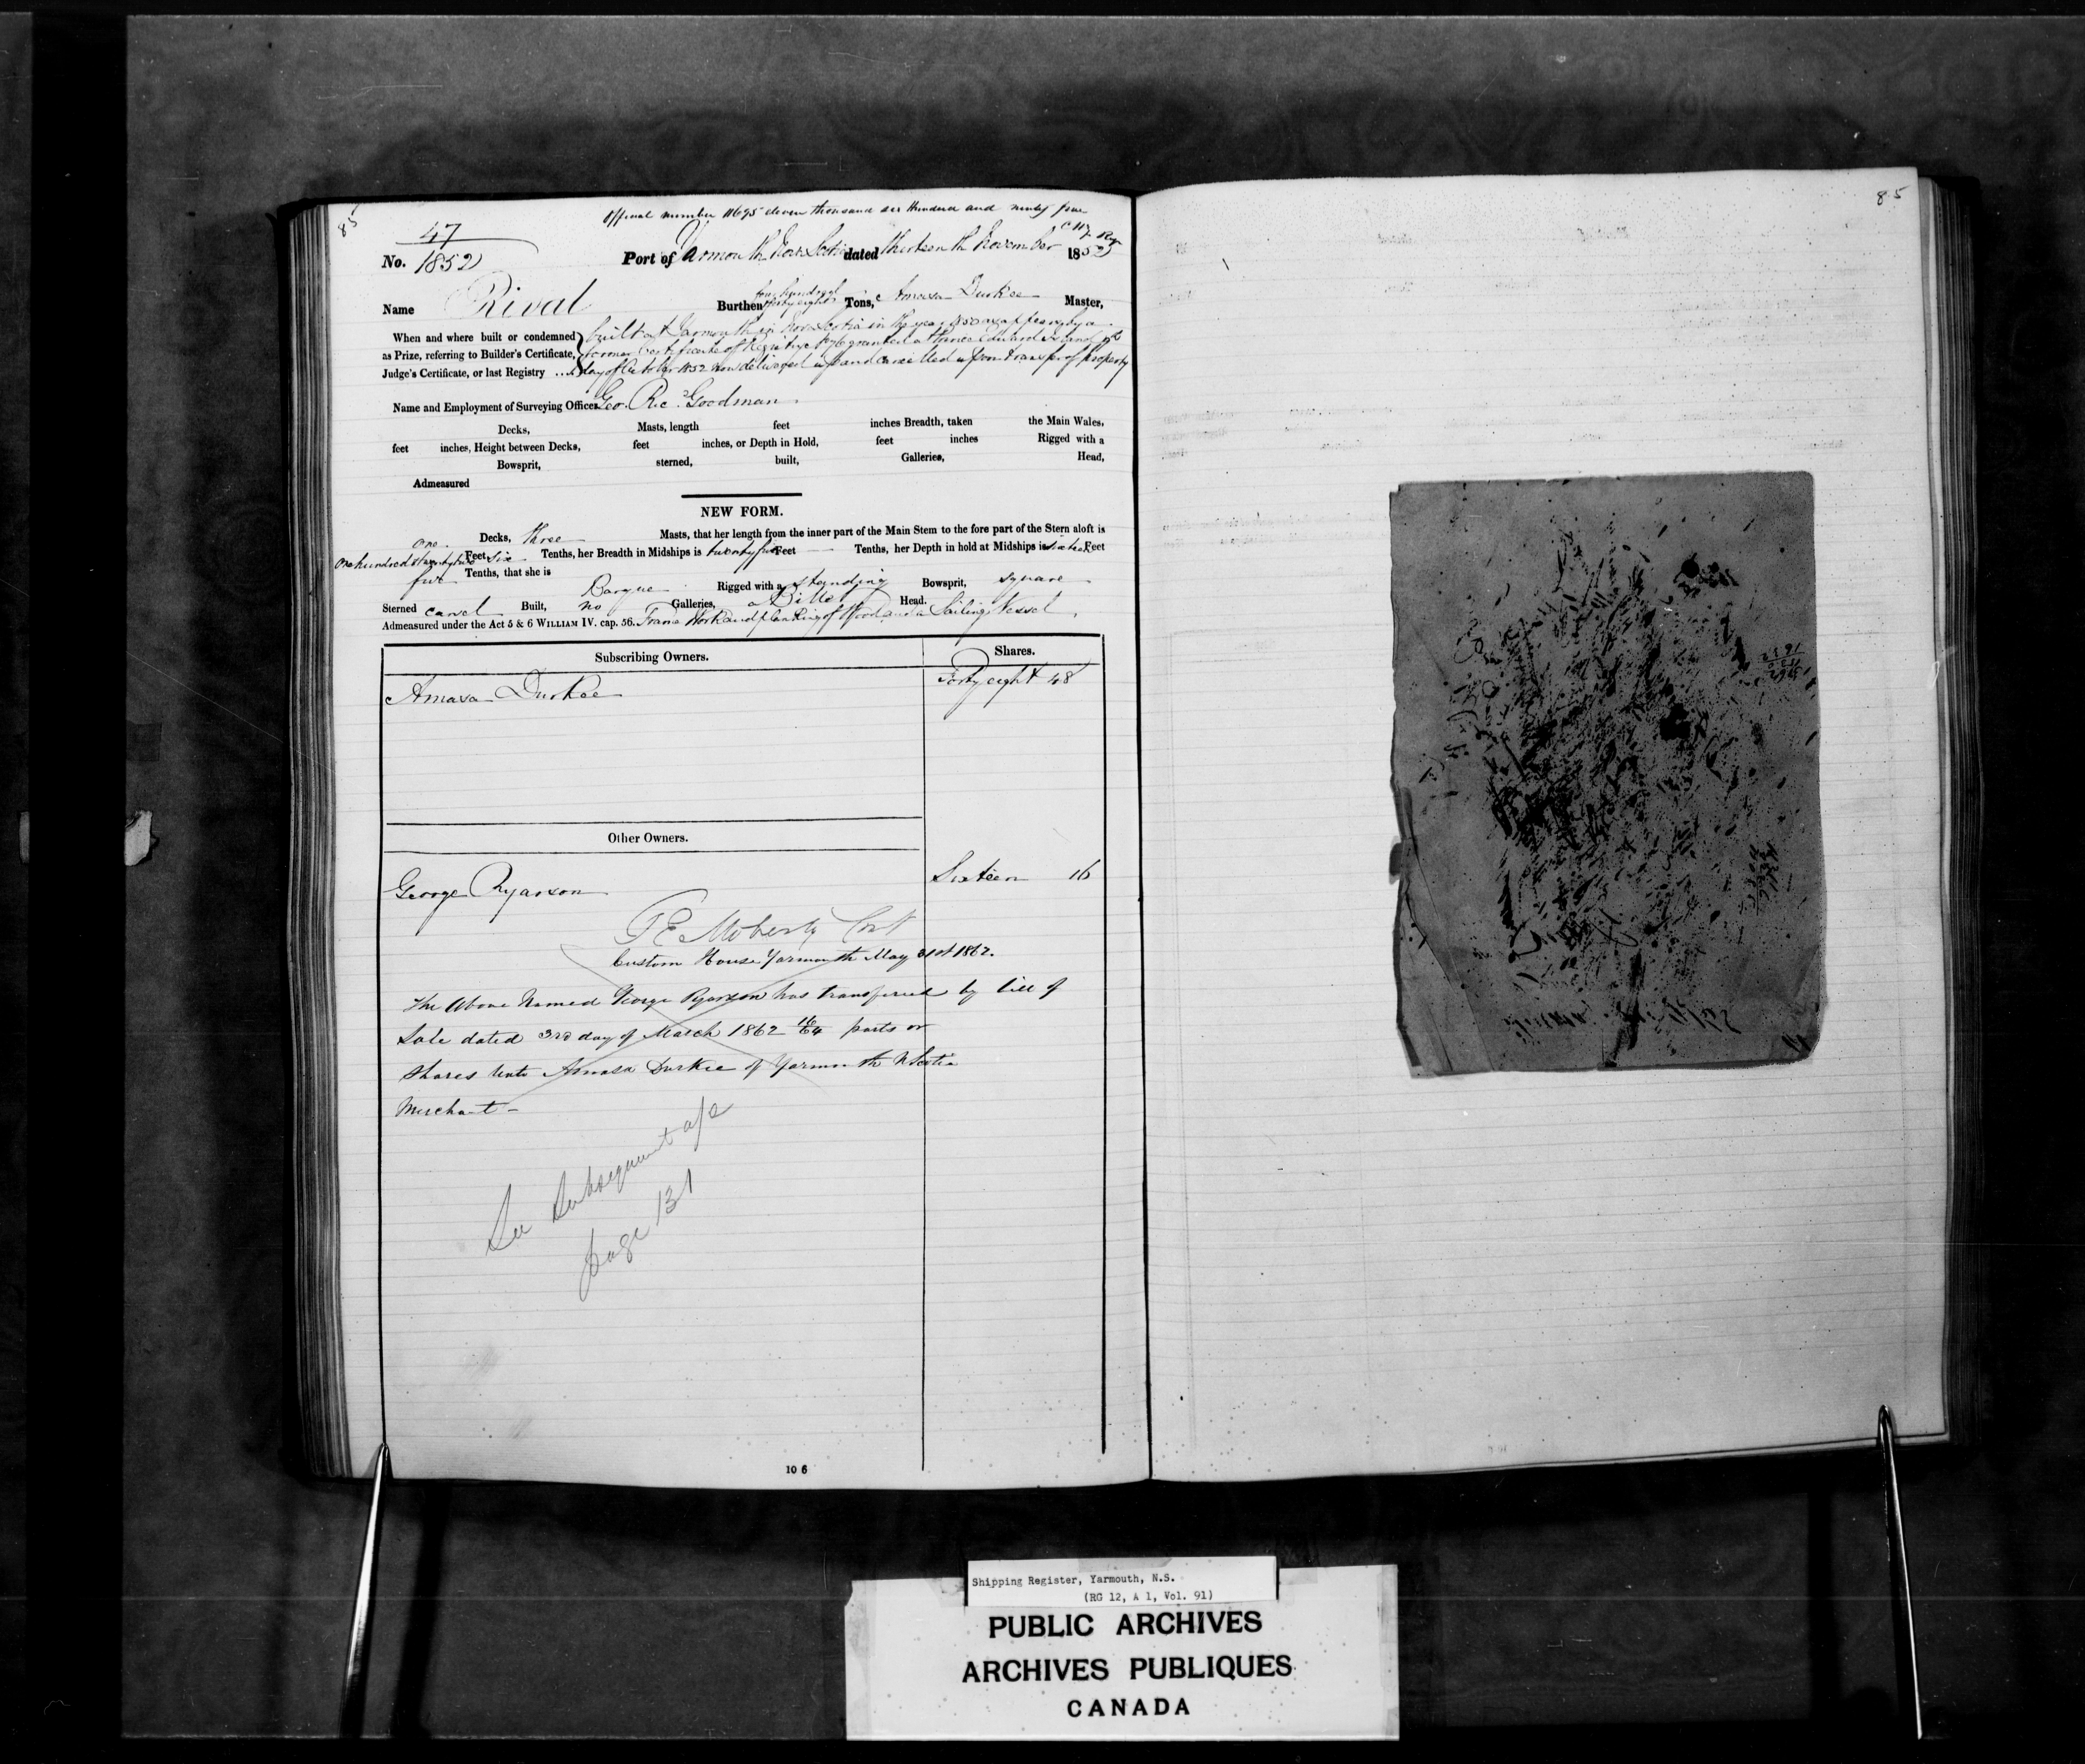 85
Official number 11695 eleven thousand six Hundred and ninety four
47
No. 1852 Port of Yarmouth Nova Scotia dated thirteenth November 1852
Name Rival Burthen four hundred forty eight Tons, Amasa Durkee Master,
When and where built or condemned built at Yarmouth in Nova Scotia in the year 1850 as appears by a
as Prize, referring to Builder's Certificate, former Certificate of Registry granted at Prince Edward Island
Judge's Certificate, or last Registry ... day of October 1852 now delivered up and cancelled upon transfer of property
Name and Employment of Surveying Officer Geo. Goodman
Decks, Masts, length feet inches Breadth, taken the Main Wales,
feet inches, Height between Decks, feet inches, or Depth in Hold, feet inches Rigged with a
Bowsprit, sterned, built, Galleries, Head,
Admeasured
NEW FORM.
one Decks, three Masts, that her length from the inner part of the Main Stem to the fore part of the Stern aloft is
One hundred & twenty two Feet six Tenths, her Breadth in Midships is twenty five Feet — Tenths, her Depth in hold at Midships is sixteen Feet
five Tenths, that she is Barque Rigged with a standing Bowsprit, square
Sterned carvel Built, no Galleries, a Billet Head.
Admeasured under the Act 5 & 6 WILLIAM IV. cap. 56. Frame Work and planking of Wood and a Sailing Vessel
Subscribing Owners. Shares.
Amasa Durkee Forty eight 48
Other Owners.
George Ryerson Sixteen 16
Custom House Yarmouth May 31st 1862.
The Above Named George Ryerson has transferred by bill of
Sale dated 3rd day of March 1862 16/64 parts or
shares unto Amasa Durkee of Yarmouth N Scotia
Merchant –
See Subsequent a/c
page 131
10 6
85
Shipping Register, Yarmouth, N.S.
(RG 12, A 1, Vol. 91)
PUBLIC ARCHIVES
ARCHIVES PUBLIQUES
CANADA